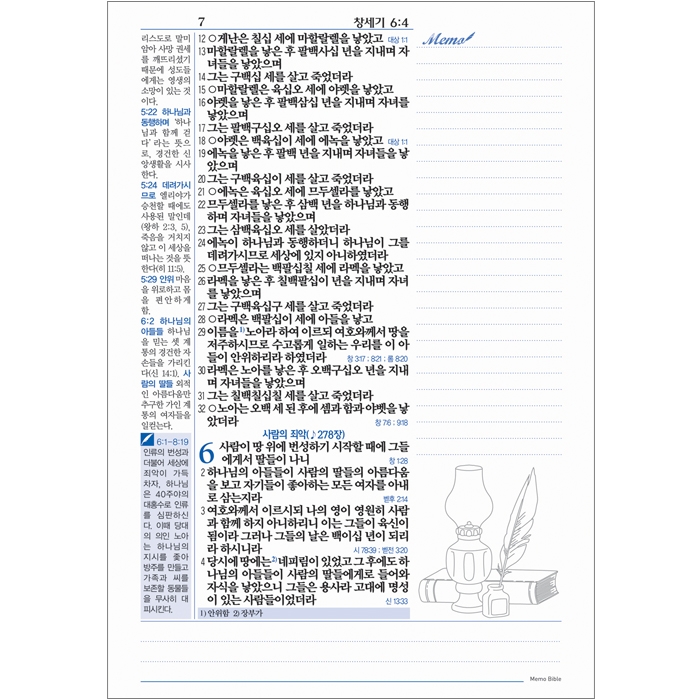 7
창세기 6:4
리스도로 말미
암아 사망 권세
를 깨뜨리셨기
때문에 성도들
에게는 영생의
소망이 있는 것
이다.
5:22 하나님과
동행하며 '하나
님과 함께 걷
다'라는 뜻으
로, 경건한 신
앙생활을 시사
한다.
5:24 데려가시
므로 엘리야가
승천할 때에도
사용된 말인데
(왕하 2:3, 5),
죽음을 거치지
않고 이 세상을
떠나는 것을 뜻
한다(히 11:5).
5:29 안위 마음
을 위로하고 몸
을 편안하게
함.
6:2 하나님의
아들들 하나님
을 믿는 셋 계
통의 경건한 자
손들을 가리킨
다(신 14:1). 사
람의 딸들 외적
인 아름다움만
추구한 가인 계
통의 여자들을
일컫는다.
6:1-8:19
인류의 번성과
더불어 세상에
죄악이 가득
차자, 하나님
은 40주야의
대홍수로 인류
를 심판하신
다. 이때 당대
의 의인 노아
는 하나님의
지시를 좇아
방주를 만들고
가족과 씨를
보존할 동물들
을 무사히 대
피시킨다.
12 ○게난은 칠십 세에 마할랄렐을 낳았고 대상 1:1
13 마할랄렐을 낳은 후 팔백사십 년을 지내며 자
녀들을 낳았으며
14 그는 구백십 세를 살고 죽었더라
15 ○마할랄렐은 육십오 세에 야렛을 낳았고
16 야렛을 낳은 후 팔백삼십 년을 지내며 자녀를
낳았으며
17 그는 팔백구십오 세를 살고 죽었더라
18 ○야렛은 백육십이 세에 에녹을 낳았고 대상 1:1
19 에녹을 낳은 후 팔백 년을 지내며 자녀들을 낳
았으며
20 그는 구백육십이 세를 살고 죽었더라
21 ○에녹은 육십오 세에 므두셀라를 낳았고
22 므두셀라를 낳은 후 삼백 년을 하나님과 동행
하며 자녀들을 낳았으며
23 그는 삼백육십오 세를 살았더라
24 에녹이 하나님과 동행하더니 하나님이 그를
데려가시므로 세상에 있지 아니하였더라
25 ○므두셀라는 백팔십칠 세에 라멕을 낳았고
26 라멕을 낳은 후 칠백팔십이 년을 지내며 자녀
를 낳았으며
27 그는 구백육십구 세를 살고 죽었더라
28 ○라멕은 백팔십이 세에 아들을 낳고
29 이름을 1)노아라 하여 이르되 여호와께서 땅을
저주하시므로 수고롭게 일하는 우리를 이 아
들이 안위하리라 하였더라 창 3:17 ; 8:21 ; 롬 8:20
30 라멕은 노아를 낳은 후 오백구십오 년을 지내
며 자녀들을 낳았으며
31 그는 칠백칠십칠 세를 살고 죽었더라
32 ○노아는 오백 세 된 후에 셈과 함과 야벳을 낳
았더라 창 7:6 ; 9:18
사람의 죄악(♪278장)
6 사람이 땅 위에 번성하기 시작할 때에 그들
에게서 딸들이 나니 창 1:28
2 하나님의 아들들이 사람의 딸들의 아름다움
을 보고 자기들이 좋아하는 모든 여자를 아내
로 삼는지라 벧후 2:14
3 여호와께서 이르시되 나의 영이 영원히 사람
과 함께 하지 아니하리니 이는 그들이 육신이
됨이라 그러나 그들의 날은 백이십 년이 되리
라 하시니라 시 78:39 ; 벧전 3:20
4 당시에 땅에는 2)네피림이 있었고 그 후에도 하
나님의 아들들이 사람의 딸들에게로 들어와
자식을 낳았으니 그들은 용사라 고대에 명성
이 있는 사람들이었더라 신 13:33
1) 안위함 2) 장부가
Memo
Memo Bible